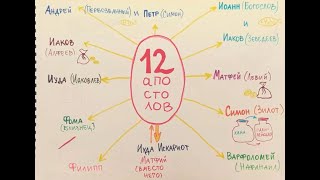 Андрей (Первозванный) и Пётр (Симон)
Иоанн (Богослов)
и
Иаков (Зеведеев)
Иаков
(Алфеев)
12
апо
сто
лов
Матфей (Левий)
Иуда (Иаковлев)
Симон (Зилот)
Фома
(Близнец)
Филипп
Иуда Искариот
Матфий
(вместо
него)
Варфоломей
(Нафанаил)